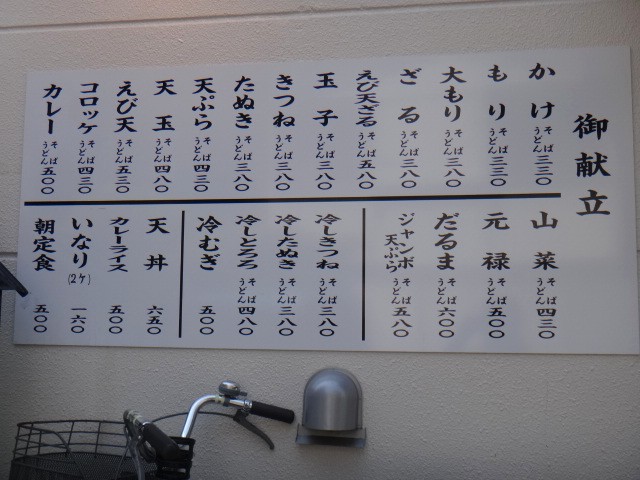 御献立
かけ そば うどん 三三〇
もり そば うどん 三三〇
大もり そば うどん 三八〇
ざる そば うどん 三八〇
えび天ざる そば うどん 五八〇
玉子 そば うどん 三八〇
きつね そば うどん 三八〇
たぬき そば うどん 三八〇
天ぷら そば うどん 四三〇
天玉 そば うどん 四八〇
えび天 そば うどん 五三〇
コロッケ そば うどん 四三〇
カレー そば うどん 五〇〇
山菜 そば うどん 四三〇
元禄 そば うどん 五〇〇
だるま そば うどん 六〇〇
ジャンボ天ぷら そば うどん 五八〇
冷しきつね そば うどん 三八〇
冷したぬき そば うどん 三八〇
冷しとろろ そば うどん 四八〇
冷むぎ 五〇〇
天丼 六五〇
カレーライス 五〇〇
いなり(2ケ) 一六〇
朝定食 五〇〇